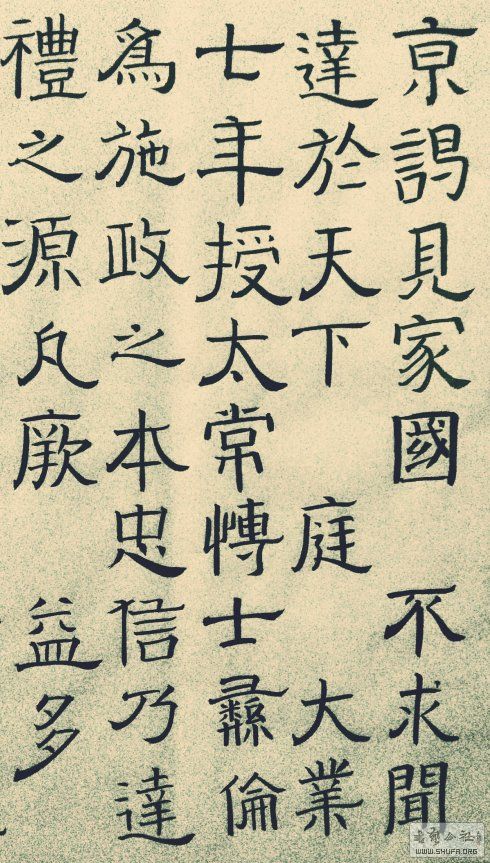 亰謁見家國 不求聞
達於天下 庭 大業
七年授太常愽士彝倫
爲施政之本忠信乃達
禮之源凡厥 益多
WWW.SHUFA.ORG